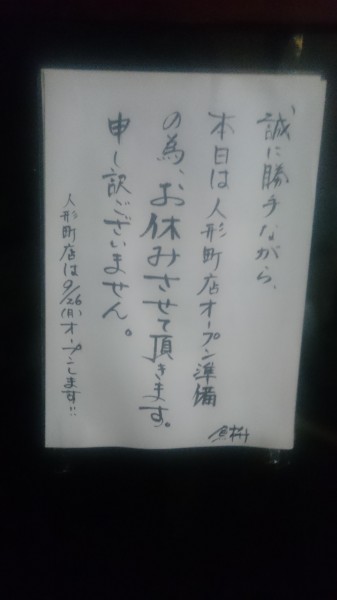 誠に勝手ながら、
本日は人形町店オープン準備
の為、お休みさせて頂きます。
申し訳ございません。
人形町店は9/26(月)オープンします!!